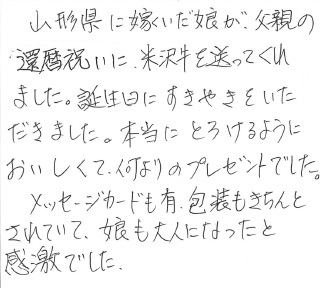 山形県に嫁いだ娘が、父親の
還暦祝いに、米沢牛を送ってくれ
ました。誕生日にすきやきをいた
だきました。本当にとろけるように
おいしくて、何よりのプレゼントでした。
メッセージカードも有、包装もきちんと
されていて、娘も大人になったと
感激でした。